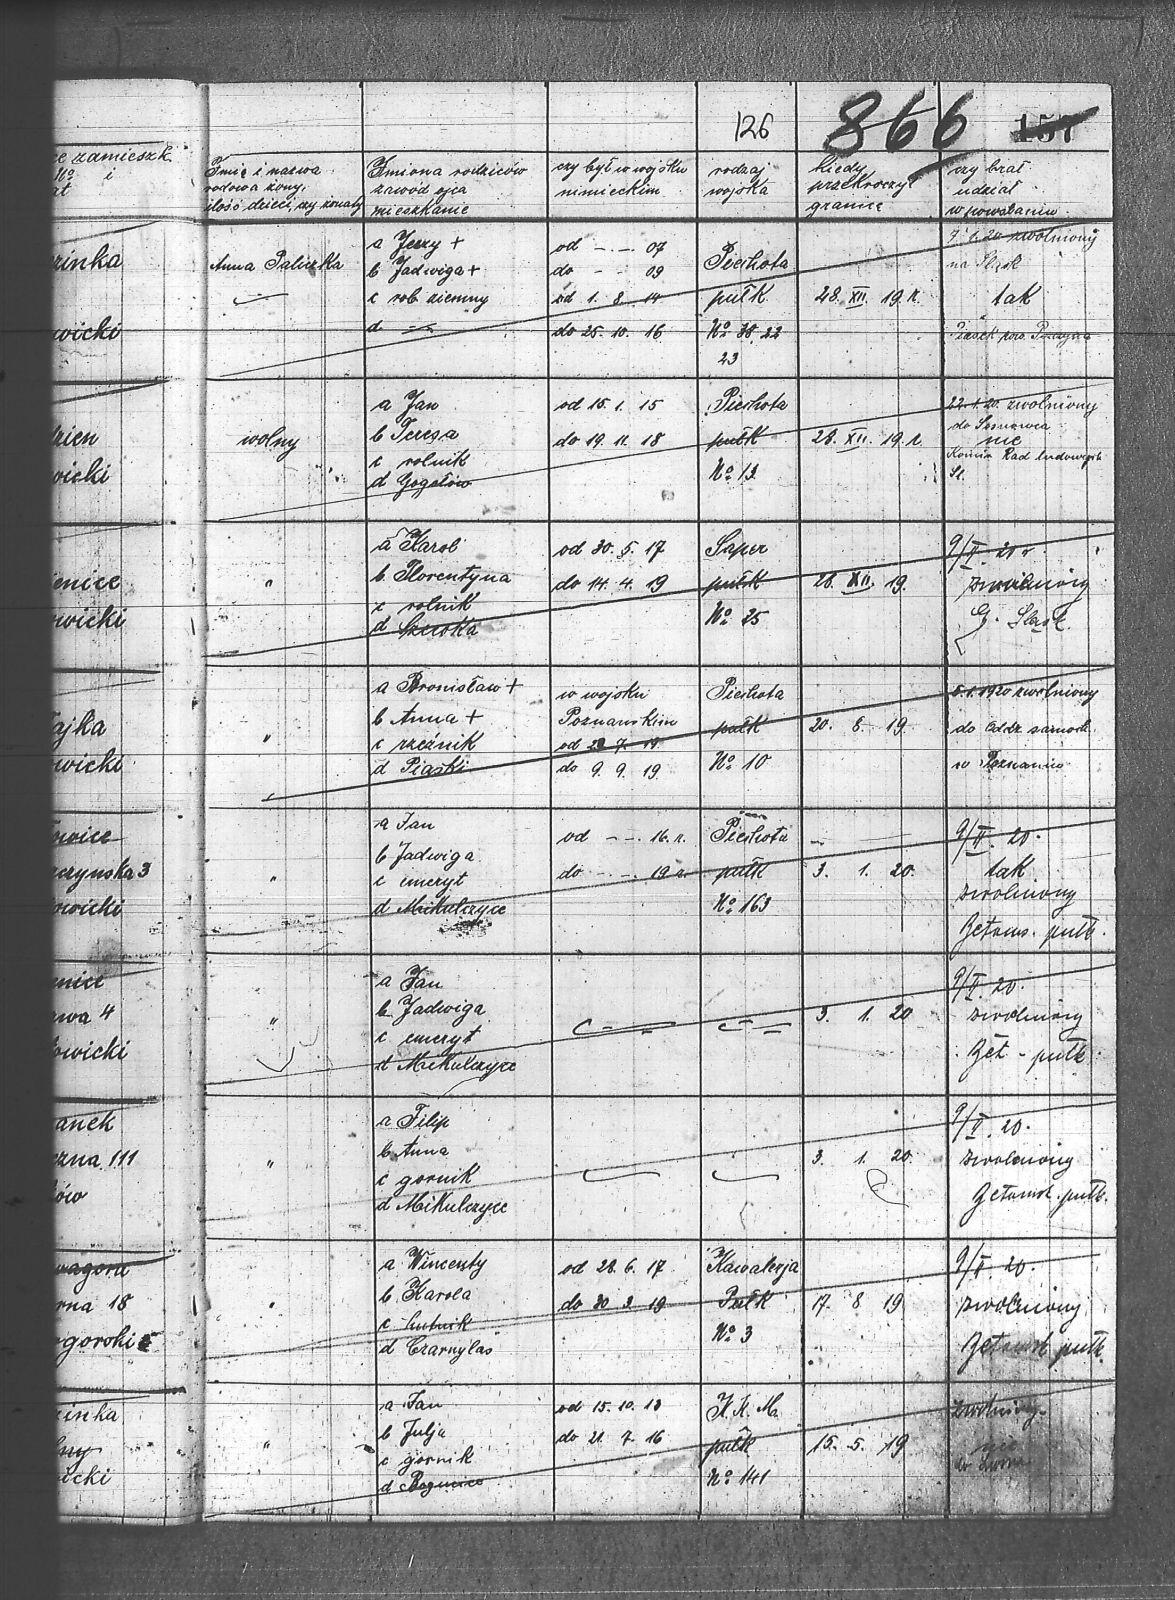 126
866
157
ce zamieszk
No i
at
Imię i nazwa
rodowa żony,
ilość dzieci, czy żonaty
Imiona rodziców
zawód ojca
mieszkanie
czy był w wojsku
nimieckim
rodzaj
wojska
kiedy
przekroczył
granicę
czy brał
udział
w powstaniu
zinka
wicki
Anna Paliczka
a Jerzy +
b Jadwiga +
c rob ziemny
d
od - . - 07
do - - 09
od 1. 8. 14
do 25. 10. 16
Piechota
pułk
No 38. 22
23
28. XII. 19 r.
7. 1. 20 zwolniony
na Śląsk
tak
Piasek pow. Pszczyna
dzien
wicki
wolny
a Jan
b Teresa
c rolnik
d Gogołów
od 15. 1. 15
do 19. 11. 18
Piechota
pułk
No 13.
28. XII. 19 r.
22. 1. 20. zwolniony
do Sosnowca
nie
Rad ludowych
Śl.
ienice
wicki
"
a Karol
b Florentyna
c rolnik
d Szeroka
od 30. 5. 17
do 14. 4. 19
Saper
pułk
No 25
28. XII. 19.
9/II. 20 r.
zwolniony
G. Śląsk.
ajka
wicki
"
a Bronisław +
b Anna +
c rzeźnik
d Piaski
w wojsku
Poznańskim
od 28 7. 19
do 9. 9. 19.
Piechota
pułk
No 10
20. 8. 19.
5. 1. 1920 zwolniony
do Oddz samoch.
w Poznaniu
owice
czynska 3
owicki
"
a Jan
b Jadwiga
c emeryt
d Mikulczyce
od - - . 16. r.
do - - . 19 r.
Piechota
pułk
No 163
3. 1. 20.
9/II. 20.
tak
zwolniony
Bytoms. pułk.
enice
awa 4
owicki
"
a Jan
b Jadwiga
c emeryt
d Mikulczyce
3. 1. 20
9/II. 20.
zwolniony
Byt - pułk.
anek
czna 111
ów
"
a Filip
b Anna
c gornik
d Mikulczyce
3. 1. 20.
9/II. 20.
zwolniony
Bytomsk. pułk.
wagoru
rna 18
gorski
"
a Wincenty
b Karola
c hutnik
d Czarnylas
od 28. 6. 17.
do 30 3. 19
Kawalerja
Pułk
No 3
17. 8. 19.
9/II. 20.
zwolniony
Bytomsk pułk.
zinka
lny
icki
"
a Jan
b Julja
c gornik
d
od 15. 10. 13
do 21. 7. 16
K. K. M.
pułk
No 141
15. 5. 19
zwolniony.
nie